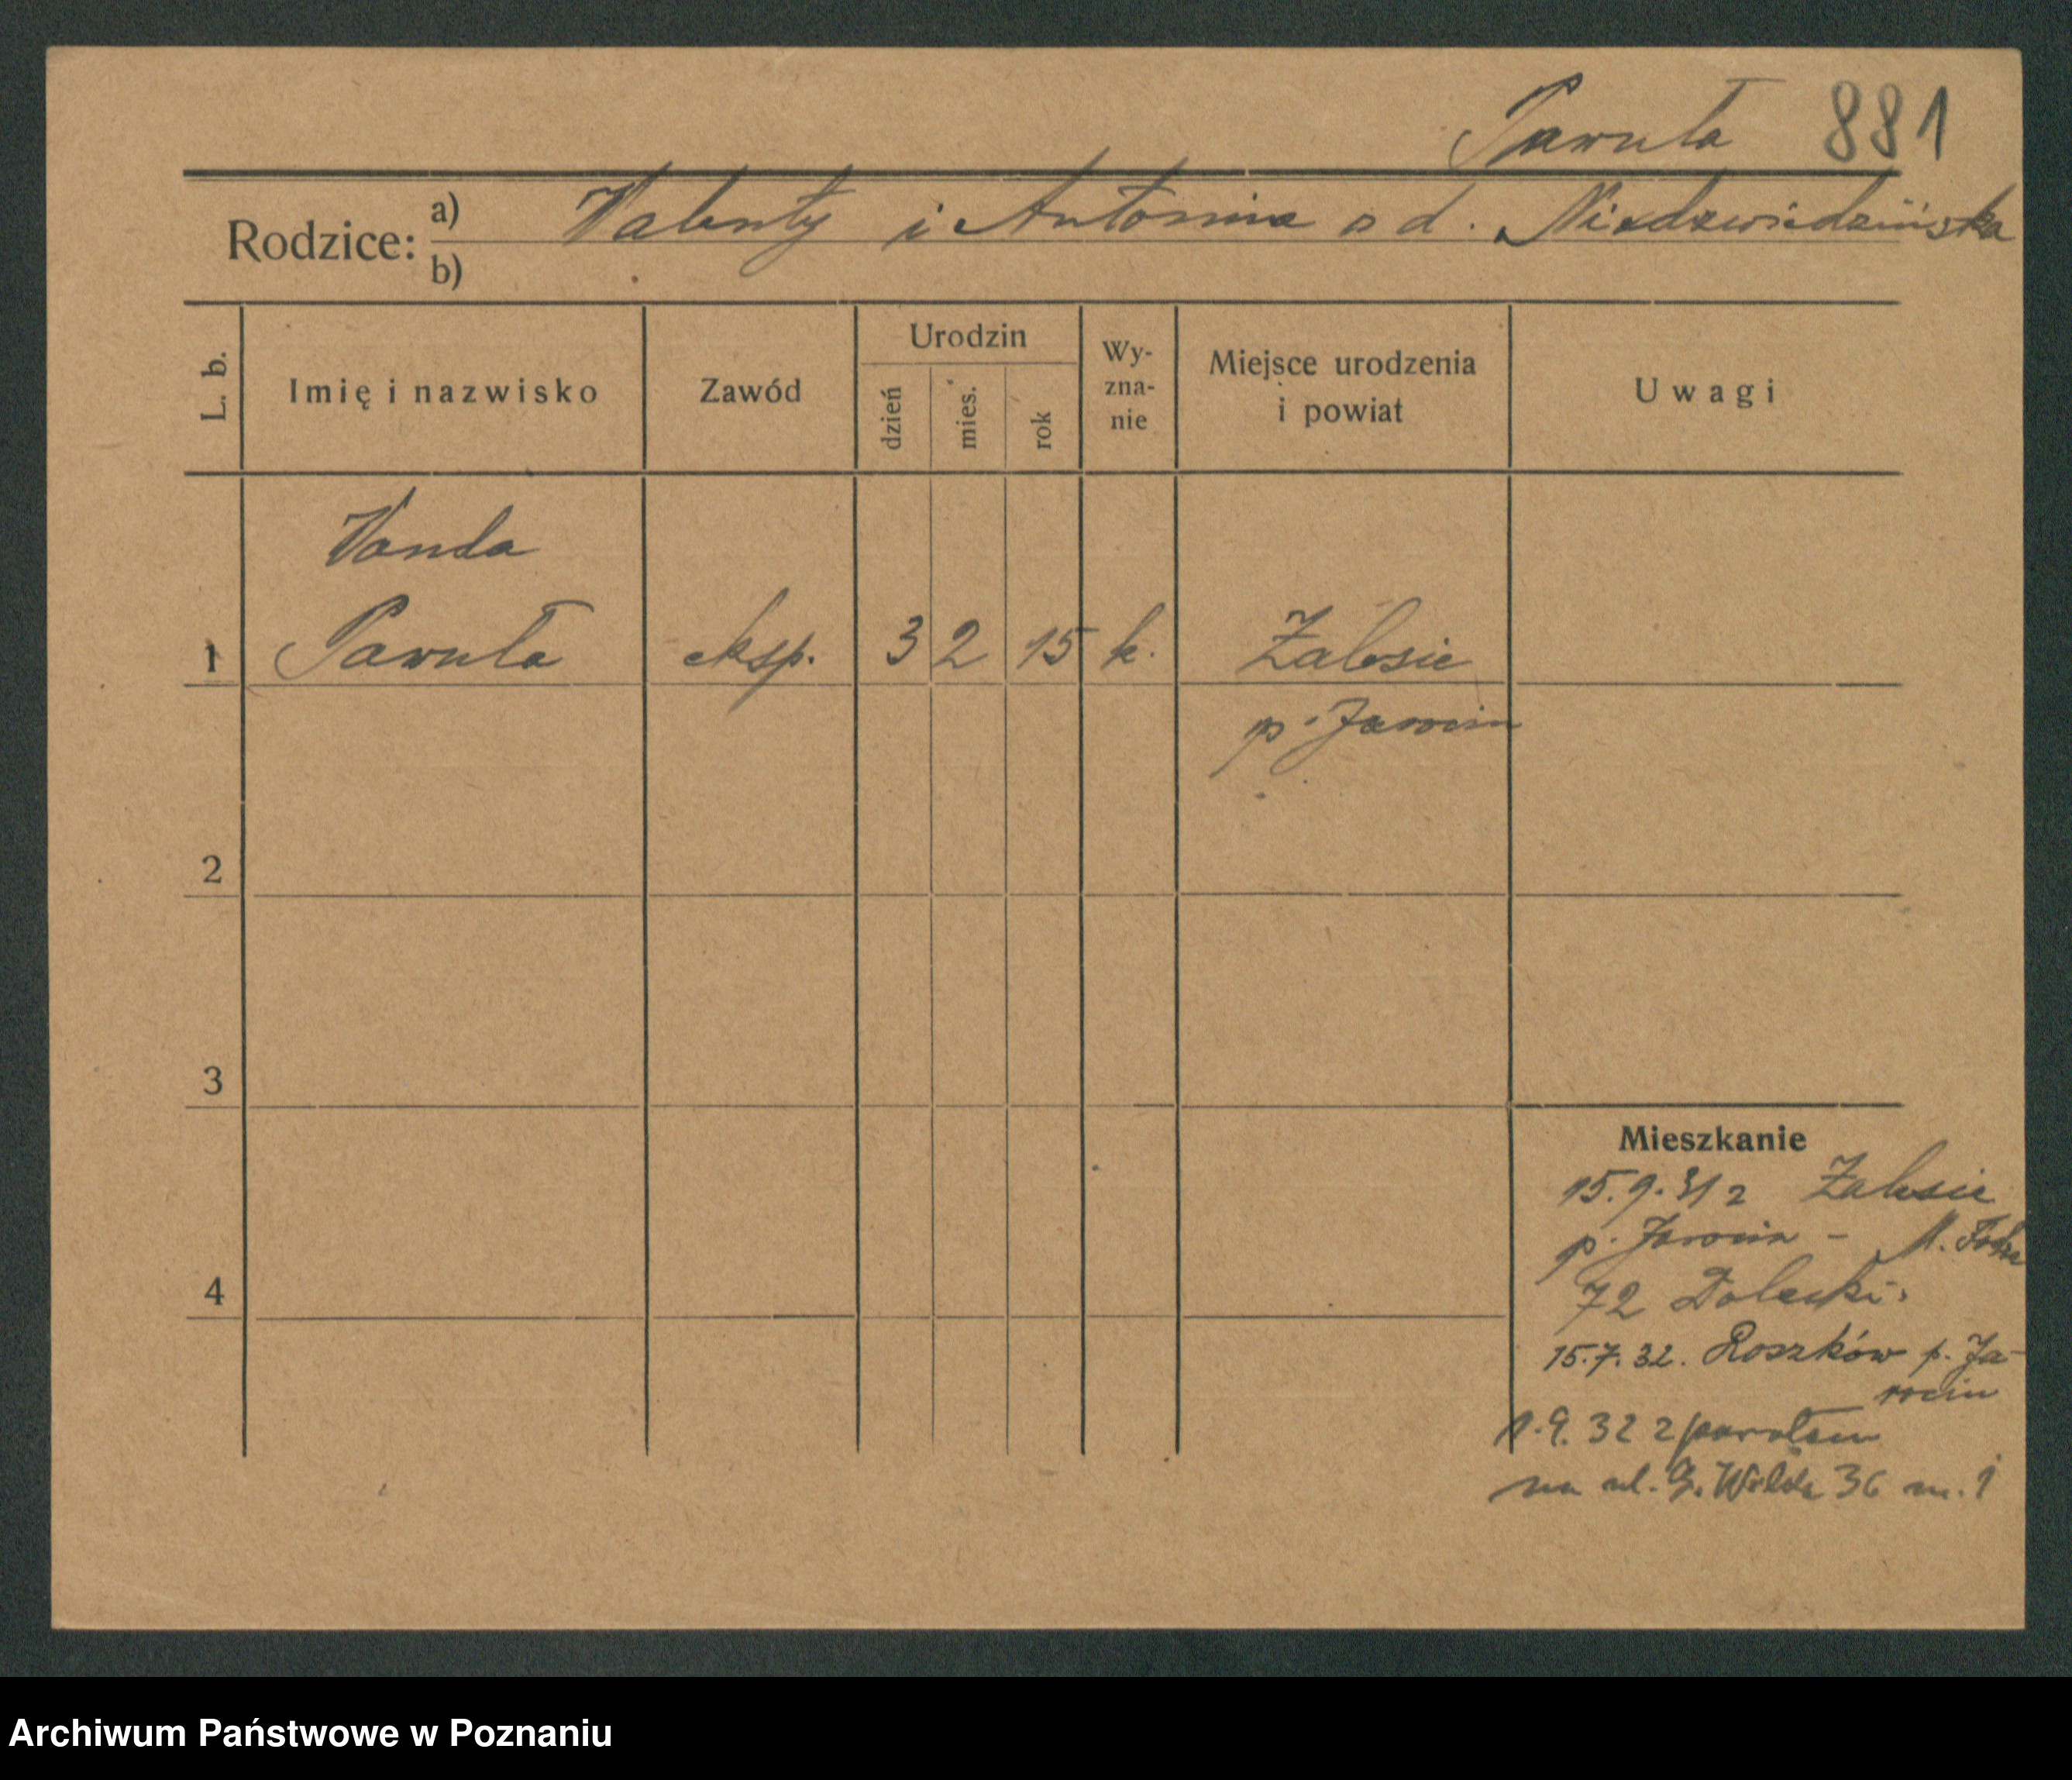 Pawuła 881
Rodzice: a) Walenty i Antonina o d. Niedzwiedzińska
b)
L. b. Imię i nazwisko Zawód Urodzin dzień mies. rok Wy-zna-nie Miejsce urodzenia i powiat Uwagi
Wanda
1 Pawuła eksp. 3 2 15 k. Zalesie
p. Jarocin
2
3
Mieszkanie
15.9.31 z Zalesie
p. Jarocin - M.
4
72
15.7.32. Roszków p. Ja-
rocin
1.9.32 z powrotem
na ul. G. Wilda 36 m. 1
Archiwum Państwowe w Poznaniu